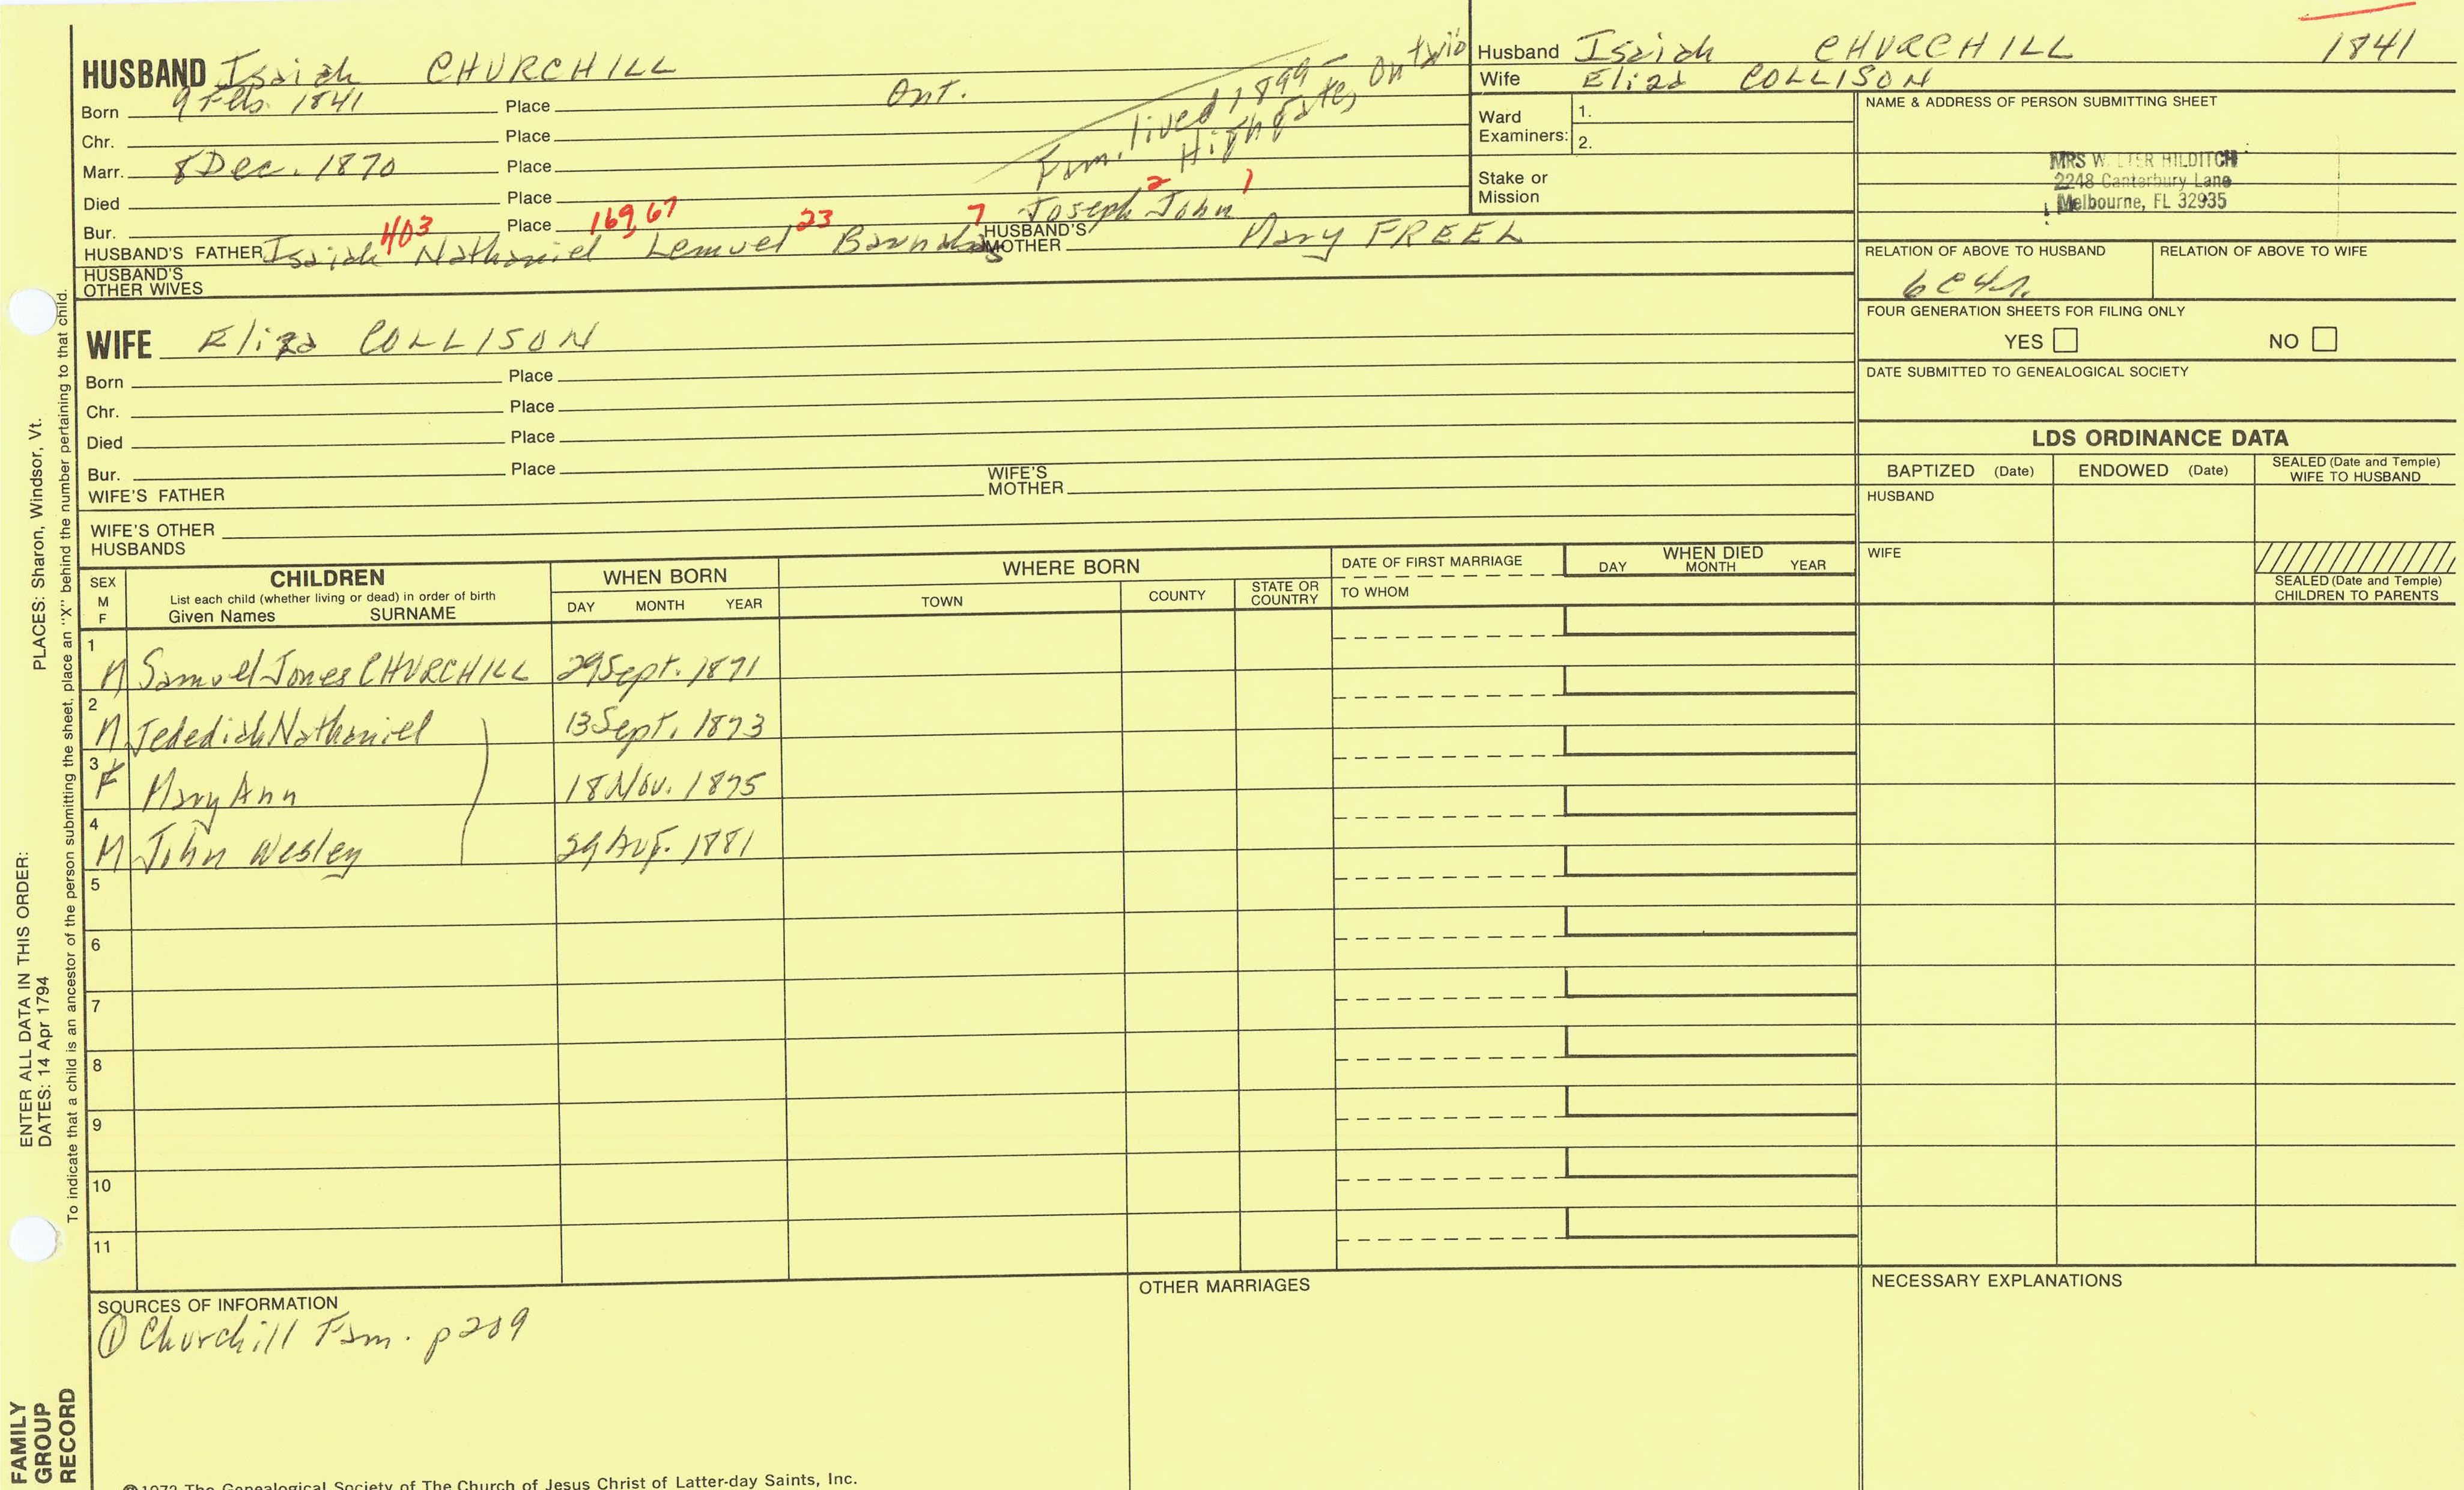 HUSBAND Isaiah CHURCHILL
Born 9 Feb. 1841 Place Ont.
Chr. Place
Marr. 8 Dec. 1870 Place
Died Place
Bur. Place
Fam. lived 1899 -
Highgate, Ontario
403 169, 67 23 7 2 1
HUSBAND'S FATHER Isaiah Nathaniel Lemuel Barnabas Joseph John
HUSBAND'S MOTHER Mary FREEL
HUSBAND'S OTHER WIVES
WIFE Eliza COLLISON
Born Place
Chr. Place
Died Place
Bur. Place
WIFE'S FATHER
WIFE'S MOTHER
WIFE'S OTHER HUSBANDS
Husband Isaiah CHURCHILL 1841
Wife Eliza COLLISON
Ward Examiners: 1.
2.
Stake or Mission
NAME & ADDRESS OF PERSON SUBMITTING SHEET
MRS HILDITCH
2248 Canterbury Lane
Melbourne, FL 32935
RELATION OF ABOVE TO HUSBAND RELATION OF ABOVE TO WIFE
6C4r.
FOUR GENERATION SHEETS FOR FILING ONLY
YES NO
DATE SUBMITTED TO GENEALOGICAL SOCIETY
LDS ORDINANCE DATA
BAPTIZED (Date) ENDOWED (Date) SEALED (Date and Temple) WIFE TO HUSBAND
HUSBAND
WIFE
SEALED (Date and Temple) CHILDREN TO PARENTS
SEX M F
CHILDREN
List each child (whether living or dead) in order of birth
Given Names SURNAME
WHEN BORN
DAY MONTH YEAR
WHERE BORN
TOWN COUNTY STATE OR COUNTRY
DATE OF FIRST MARRIAGE
TO WHOM
WHEN DIED
DAY MONTH YEAR
1 M Samuel Jones CHURCHILL 29 Sept. 1871
2 M Jedediah Nathaniel 13 Sept. 1873
3 F Mary Ann 18 Nov. 1875
4 M John Wesley 29 Aug. 1881
5
6
7
8
9
10
11
SOURCES OF INFORMATION
① Churchill Fam. p 209
OTHER MARRIAGES
NECESSARY EXPLANATIONS
©1972 The Genealogical Society of The Church of Jesus Christ of Latter-day Saints, Inc.
FAMILY
GROUP
RECORD
ENTER ALL DATA IN THIS ORDER:
DATES: 14 Apr 1794
PLACES: Sharon, Windsor, Vt.
To indicate that a child is an ancestor of the person submitting the sheet, place an "X" behind the number pertaining to that child.